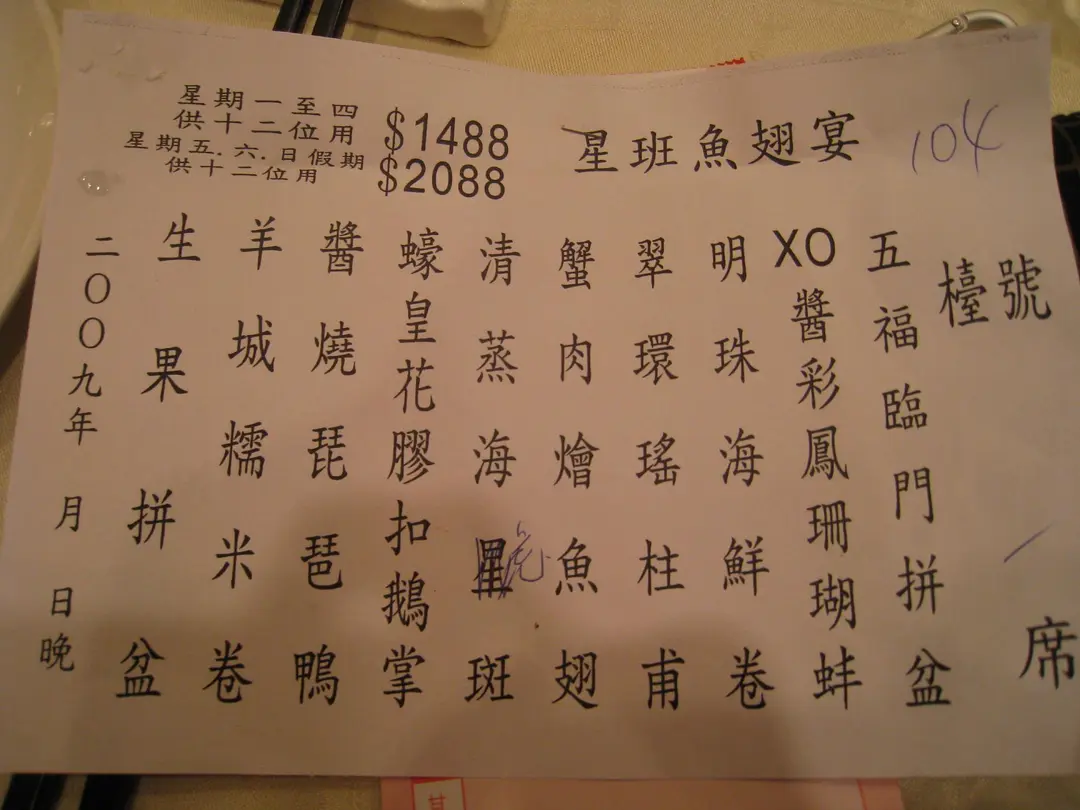 星班魚翅宴
104
$1488
星期一至四
供十二位用
$2088
星期五.六.日假期
供十二位用
檯號
一席
五福臨門拼盆
XO醬彩鳳珊瑚蚌
明珠海鮮卷
翠環瑤柱甫
蟹肉燴魚翅
清蒸海星斑
虎
蠔皇花膠扣鵝掌
醬燒琵琶鴨
羊城糯米卷
生果拼盆
二〇〇九年 月 日晚